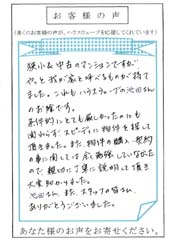 お客様の声
（多くのお客様の声が、ハウスウェーブを応援してくれています）
狭小な中古のマンションですが
やっと我が家と呼べるものが持て
ました。これもハウスウェーブの池田さん
のお陰です。
条件的にとても厳しかったのにも
関わらず、スピーディに物件を探して
頂きました。また、物件の購入、契約
の事に関しては全く勉強していなかった
ので、親切に丁寧に説明して頂き
大変助かりました。
池田さん、また、スタッフの皆さん、
ありがとうございました。
あなた様のお声をお寄せください。